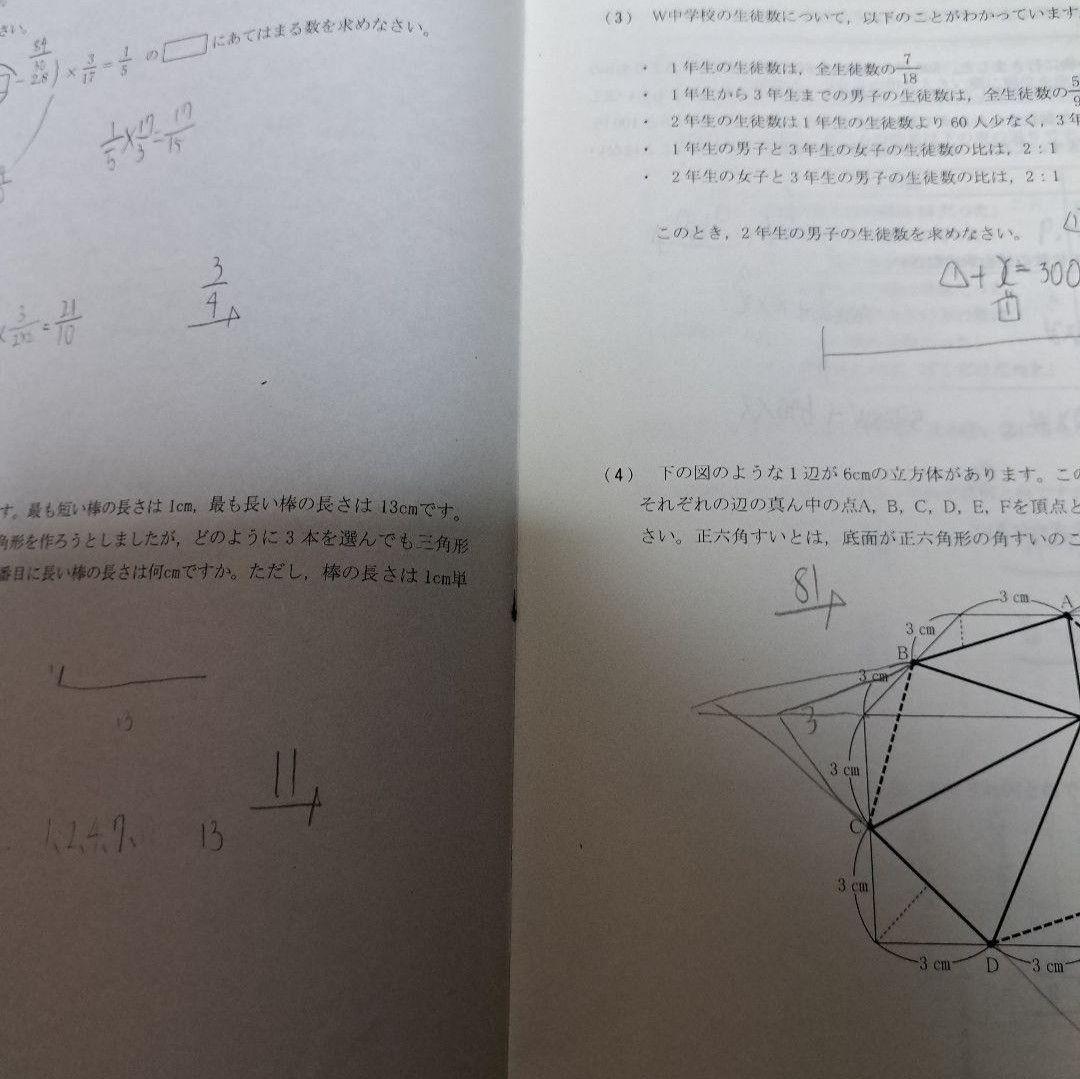 さい。
84
10
2.8) × 3/17 = 1/5 の□にあてはまる数を求めなさい。
1/5 × 17/3 = 17/15
3/4
= 21/10
す。最も短い棒の長さは 1cm, 最も長い棒の長さは 13cmです。
角形を作ろうとしましたが, どのように 3 本を選んでも三角形
番目に長い棒の長さは何cmですか。ただし, 棒の長さは 1cm単
13
11
1, 2, 4, 7, 13
(3) W中学校の生徒数について, 以下のことがわかっています
・ 1年生の生徒数は, 全生徒数の 7/18
・ 1年生から3年生までの男子の生徒数は, 全生徒数の 5/9
・ 2年生の生徒数は1年生の生徒数より 60 人少なく, 3年
・ 1年生の男子と3年生の女子の生徒数の比は, 2:1
・ 2年生の女子と3年生の男子の生徒数の比は, 2:1
このとき, 2年生の男子の生徒数を求めなさい。
△1 + x = 300
1
(4) 下の図のような1辺が 6cmの立方体があります。この
それぞれの辺の真ん中の点A, B, C, D, E, Fを頂点と
さい。正六角すいとは, 底面が正六角形の角すいのこ
81
3 cm
A
3 cm
B
3 cm
3
3 cm
C
3 cm
3 cm
D
3 cm